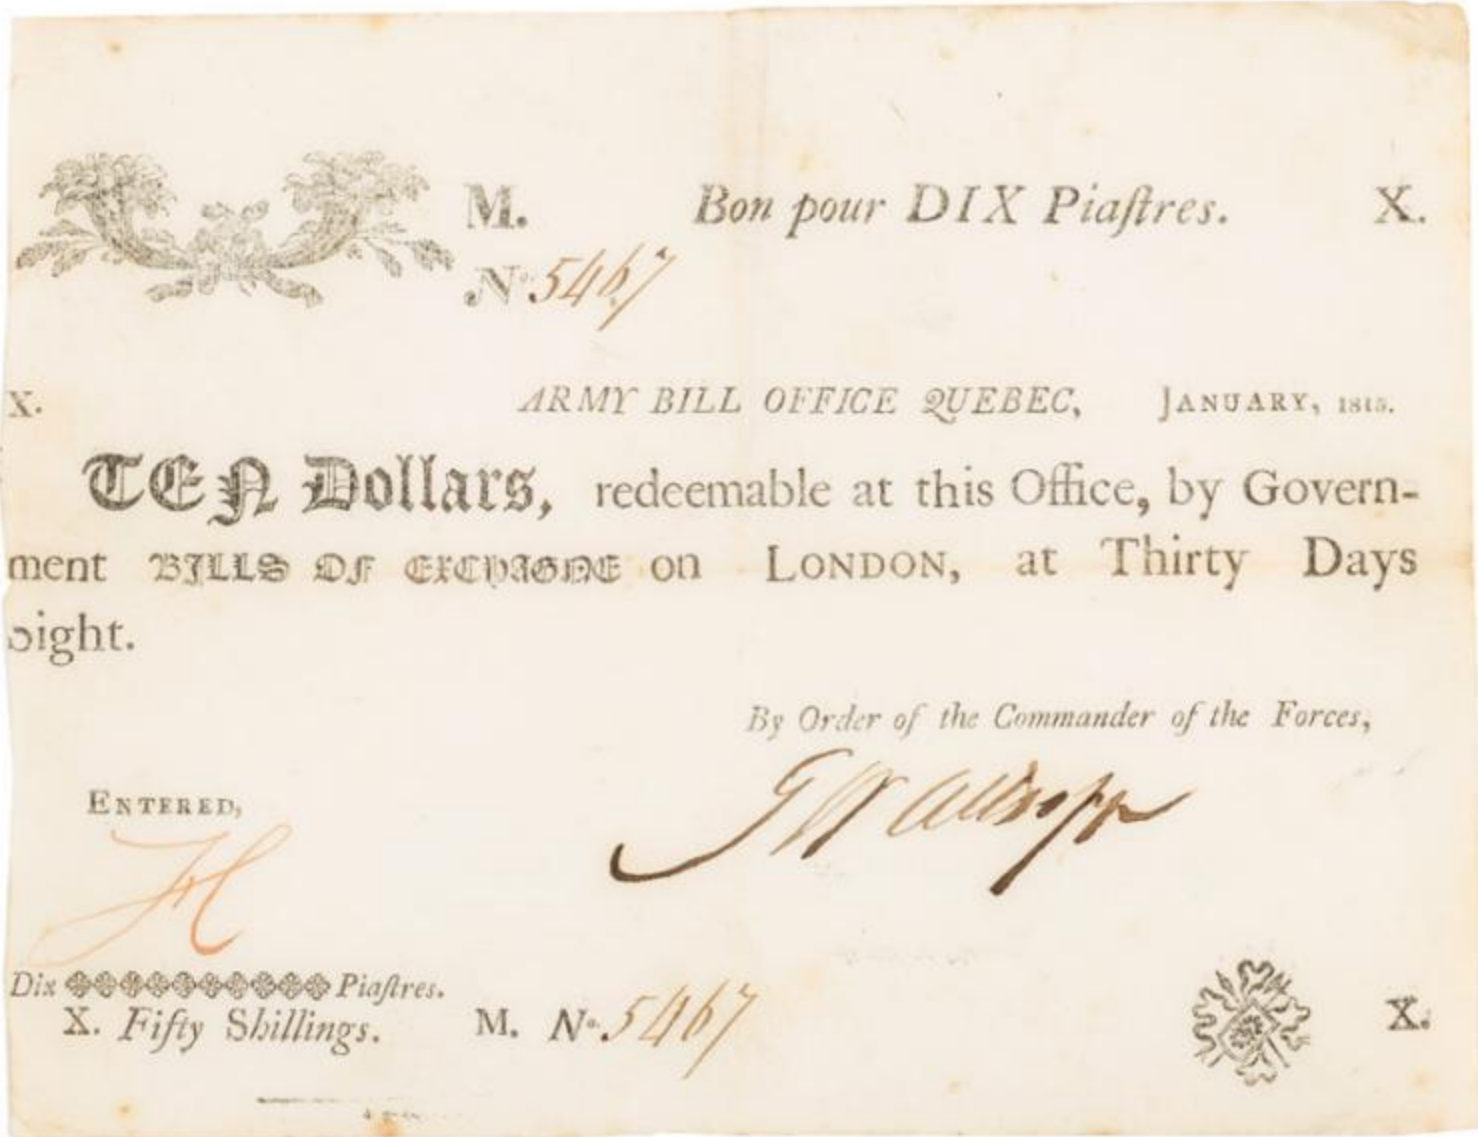 M. Bon pour DIX Piaſtres. X.
No. 5467
X. ARMY BILL OFFICE QUEBEC, JANUARY, 1815.
TEN Dollars, redeemable at this Office, by Govern-
ment BILLS OF EXCHAGNE on LONDON, at Thirty Days
Sight.
By Order of the Commander of the Forces,
ENTERED,
Dix Piaſtres.
X. Fifty Shillings. M. No. 5467 X.